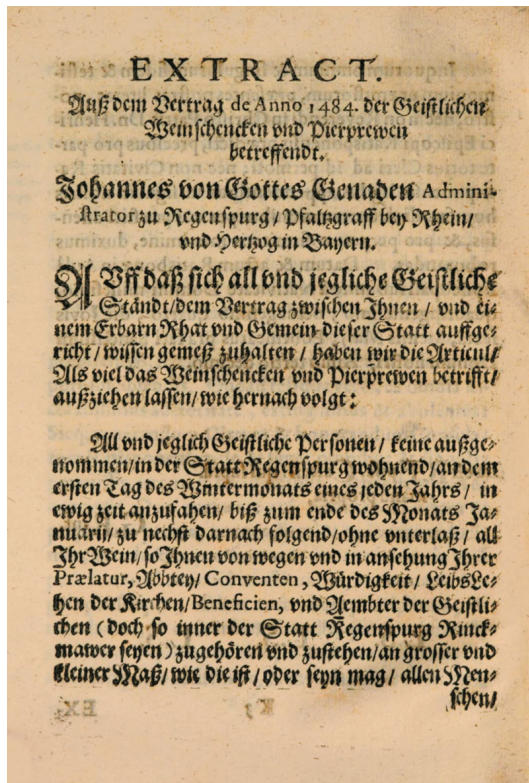 EXTRACT.
Auß dem Vertrag de Anno 1484. der Geistlichen
Weinschencken vnd Pierprewen
betreffendt.
Johannes von Gottes Genaden Admini-
strator zu Regenspurg / Pfaltzgraff bey Rhein /
vnd Hertzog in Bayern.
AUff daß sich all vnd jegliche Geistliche
Ständt / dem Vertrag zwischen Ihnen / vnd ei-
nem Erbarn Rhat vnd Gemein dieser Statt auffge-
richt / wissen gemeß zuhalten / haben wir die Articul /
Als viel das Weinschencken vnd Pierprewen betrifft /
außziehen lassen / wie hernach volgt:
All vnd jeglich Geistliche Personen / keine außge-
nommen / in der Statt Regenspurg wohnend / an dem
ersten Tag des Wintermonats eines jeden Jahrs / in
ewig zeit anzufahen / biß zum ende des Monats Ja-
nuarij / zu nechst darnach folgend / ohne vnterlaß / all
Ihr Wein / so Ihnen von wegen vnd in ansehung Ihrer
Prælatur, Abbtey / Conventen, Würdigkeit / LeibsLe-
hen der Kirchen / Beneficien, vnd Aembter der Geistli-
chen (doch so inner der Statt Regenspurg Rinck-
mawer seyen) zugehören vnd zustehen / an grosser vnd
kleiner Maß / wie die ist / oder seyn mag / allen Men-
schen /